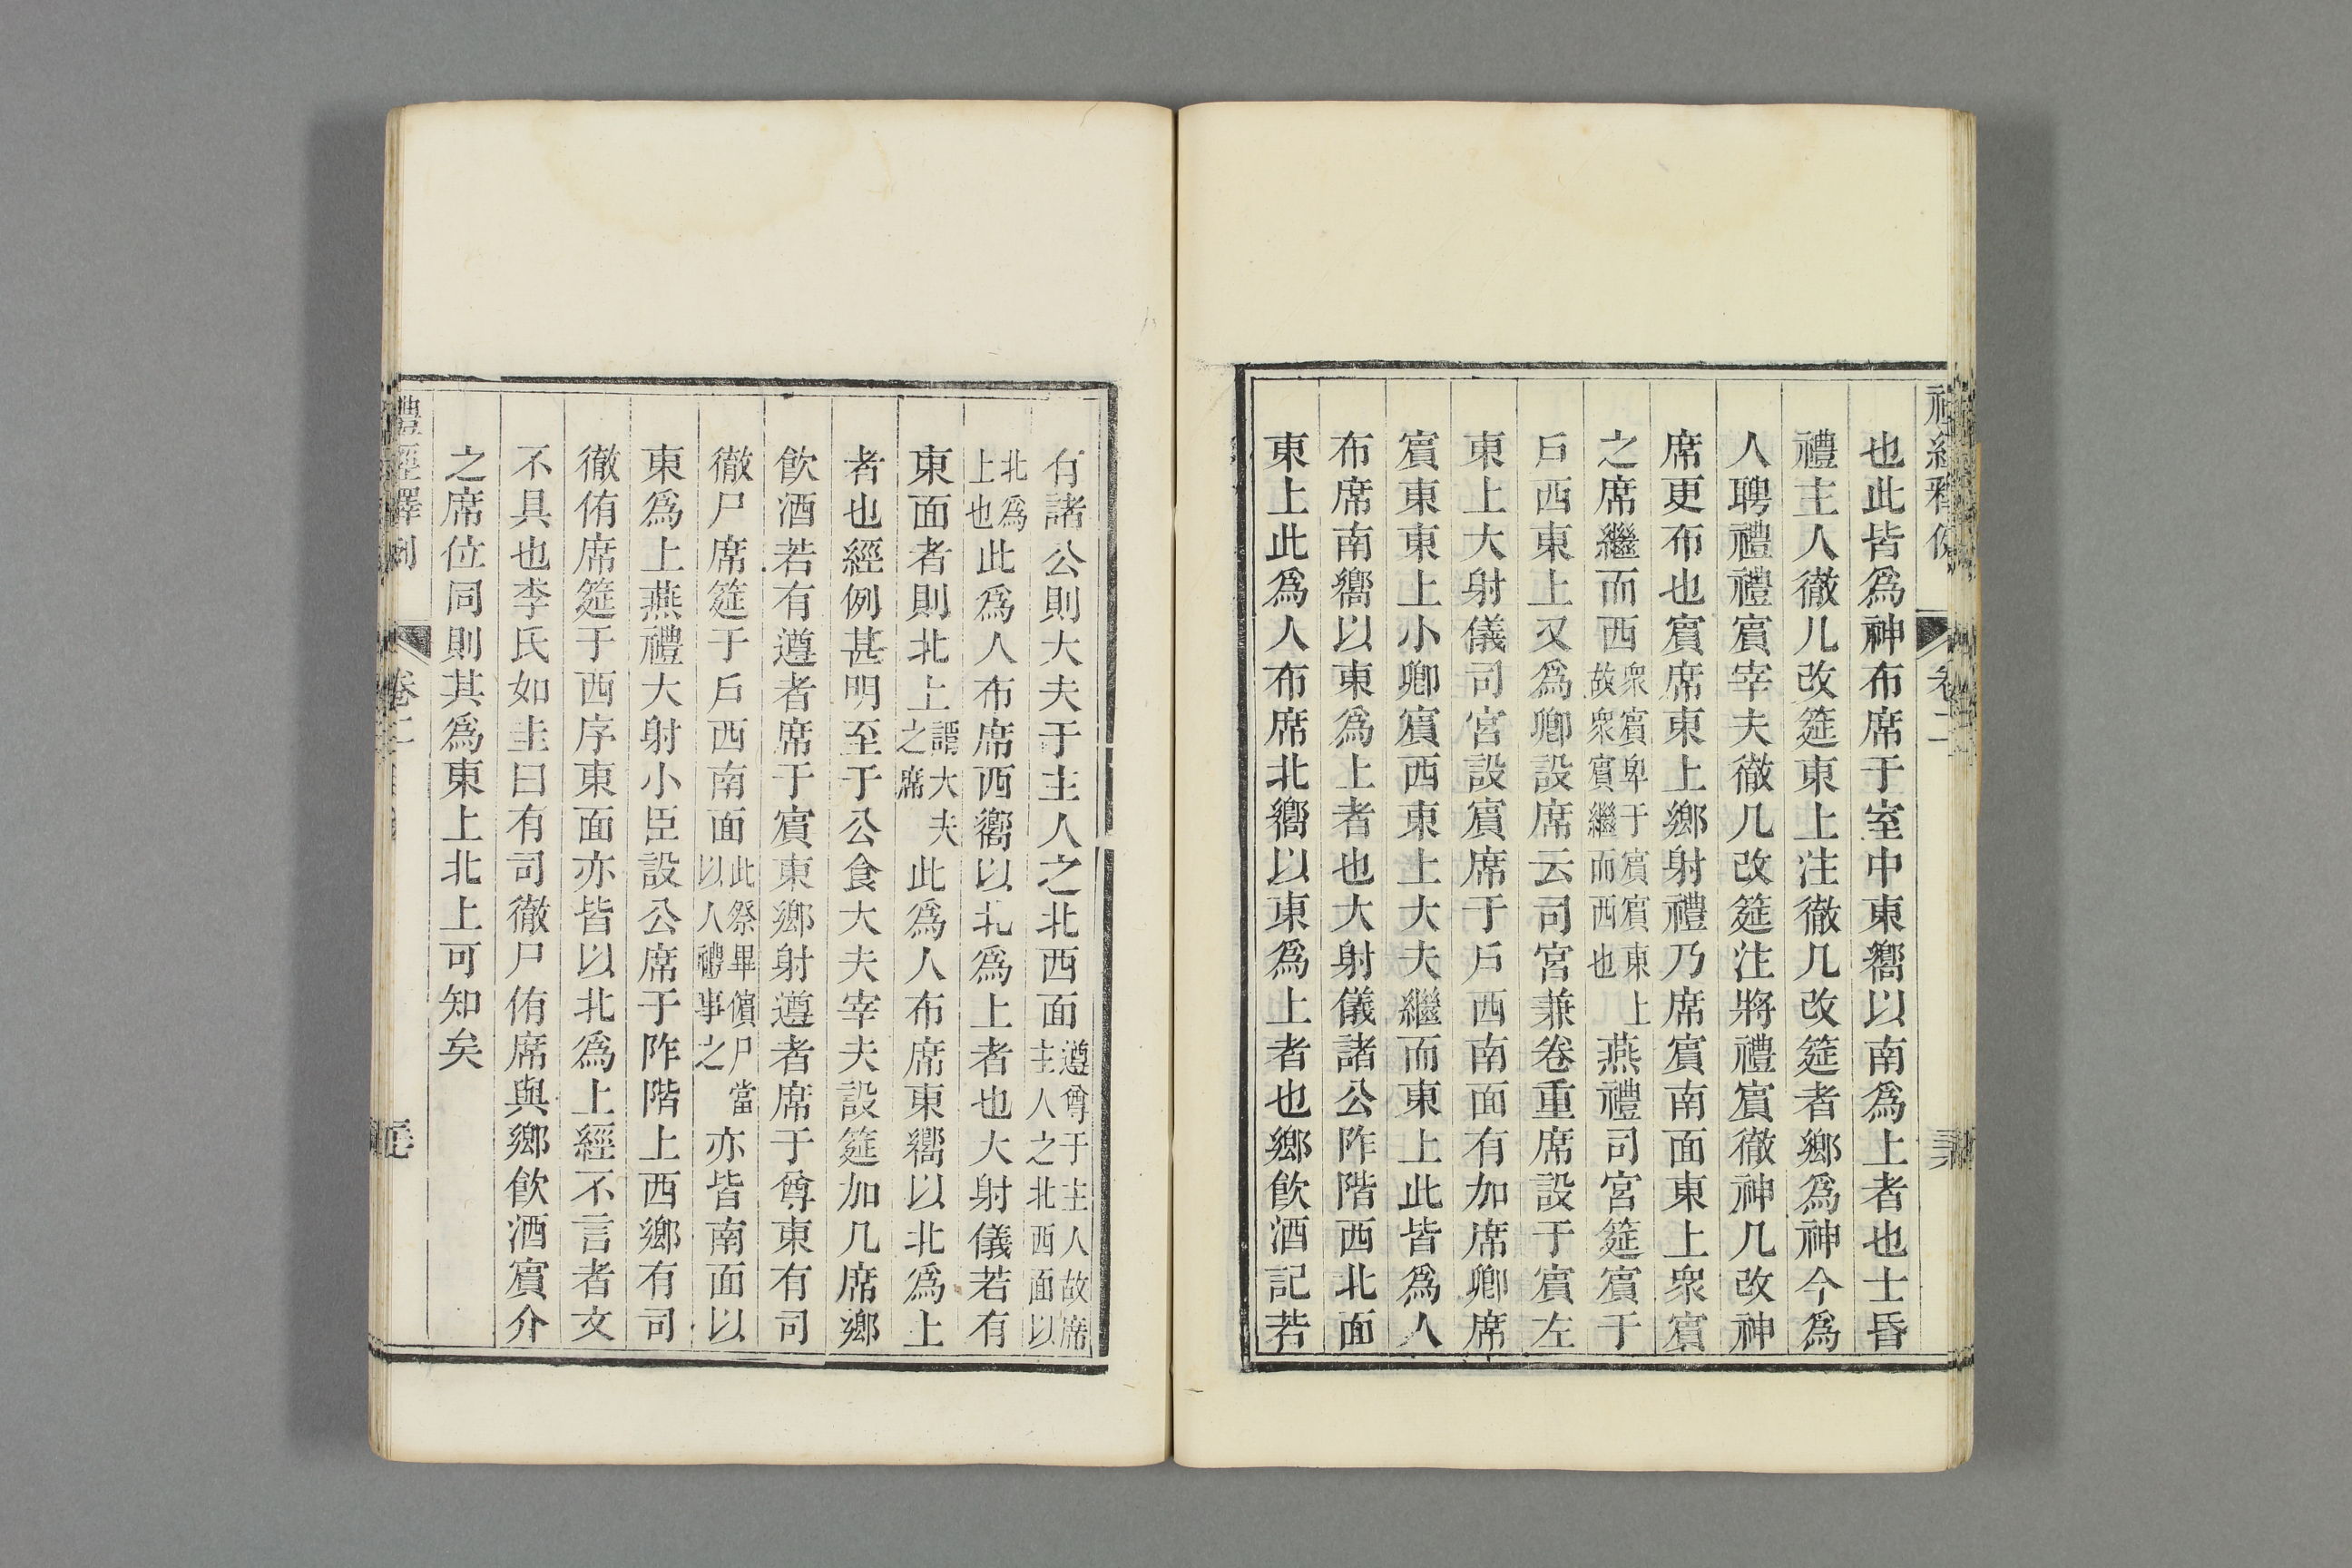 也此皆爲神布席于室中東嚮以南爲上者也士昏
禮主人徹几改筵東上注徹几改筵者鄉爲神今爲
人聘禮禮賓宰夫徹几改筵注將禮賓徹神几改神
席更布也賓席東上鄉射禮乃席賓南面東上衆賓
之席繼而西衆賓卑于賓賓東上故衆賓繼而西也燕禮司宮筵賓于
戶西東上又爲卿設席云司宮兼卷重席設于賓左
東上大射儀司宮設賓席于戶西南面有加席卿席
賓東東上小卿賓西東上大夫繼而東上此皆爲人
布席南嚮以東爲上者也大射儀諸公阼階西北面
東上此爲人布席北嚮以東爲上者也鄉飲酒記若
有諸公則大夫于主人之北西面遵尊于主人故席主人之北西面以
北爲上也此爲人布席西嚮以北爲上者也大射儀若有
東面者則北上謂大夫之席此爲人布席東嚮以北爲上
者也經例甚明至于公食大夫宰夫設筵加几席鄉
飲酒若有遵者席于賓東鄉射遵者席于尊東有司
徹尸席筵于戶西南面此祭畢儐尸當以人禮事之亦皆南面以
東爲上燕禮大射小臣設公席于阼階上西鄉有司
徹侑席筵于西序東面亦皆以北爲上經不言者文
不具也李氏如圭曰有司徹尸侑席與鄉飲酒賓介
之席位同則其爲東上北上可知矣
禮經釋例
卷二